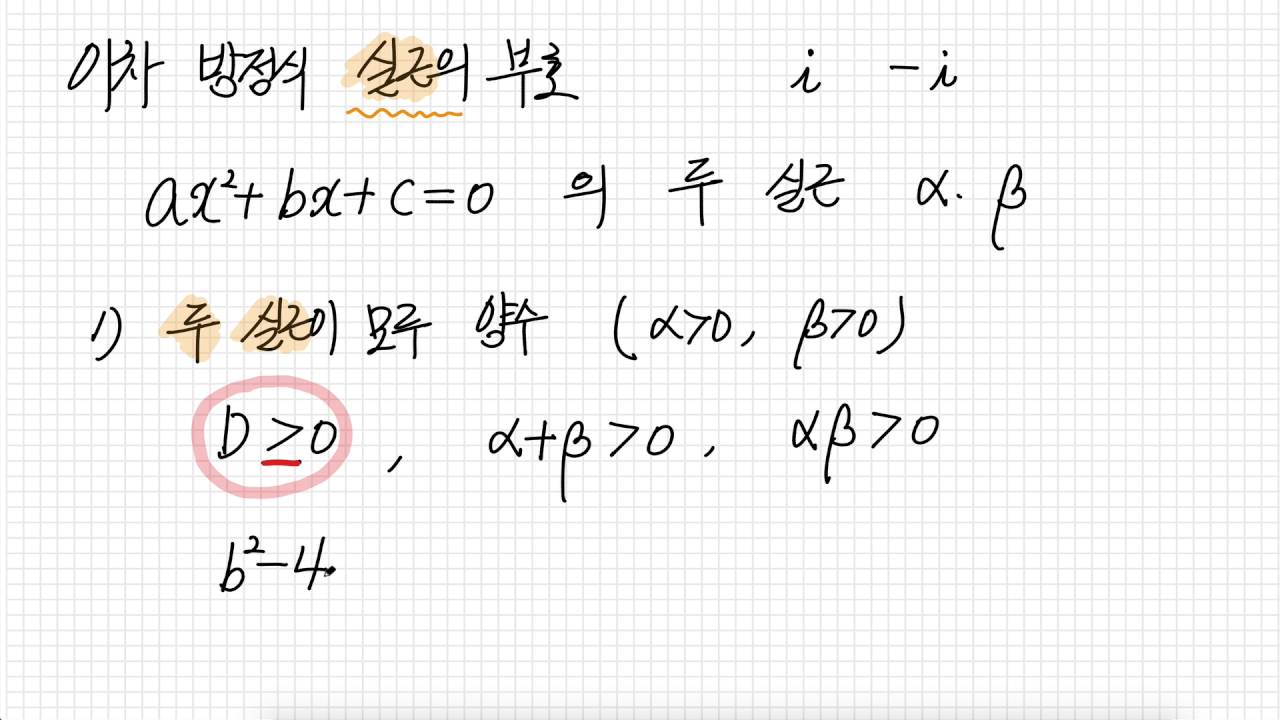 이차 방정식 실근의 부호 i -i
ax²+bx+c=0 의 두 실근 α. β
1) 두 실근이 모두 양수 (α>0, β>0)
D≥0, α+β>0, αβ>0
b²-4